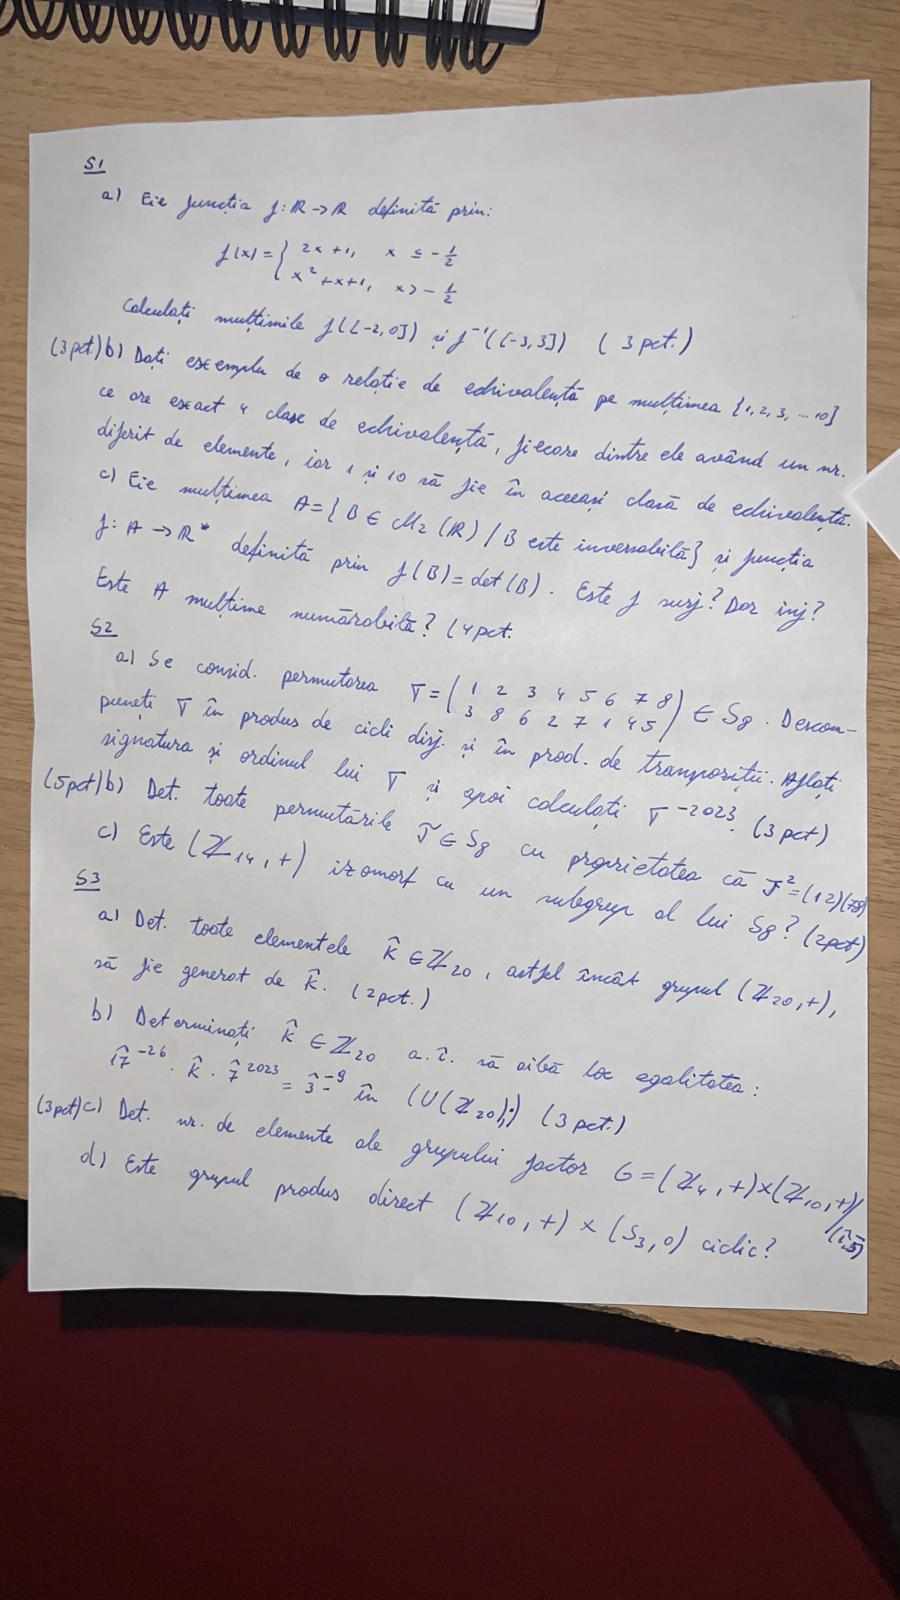 S1
a) Fie funcția f: ℝ → ℝ definită prin:
f(x) = { 2x+1, x ≤ -1/2
x² + x + 1, x > -1/2
Calculați mulțimile f([-2, 0]) și f⁻¹([-3, 3]) (3 pct.)
(3 pct.) b) Dați exemplu de o relație de echivalență pe mulțimea {1, 2, 3, ... 10}
ce are exact 4 clase de echivalență, fiecare dintre ele având un nr.
diferit de elemente, iar 1 și 10 să fie în aceeași clasă de echivalență.
c) Fie mulțimea A = { B ∈ M₂(ℝ) / B este inversabilă} și funcția
f: A → ℝ* definită prin f(B) = det(B). Este f surj? Dar inj?
Este A mulțime numărabilă? (4 pct.
S2
a) Se consid. permutarea σ = ( 1 2 3 4 5 6 7 8
3 8 6 2 7 1 4 5 ) ∈ S₈. Descom-
puneți σ în produs de cicli disj. și în prod. de tranpoziții. Aflați
signatura și ordinul lui σ și apoi calculați σ⁻²⁰²³. (3 pct)
(5 pct) b) Det. toate permutările J ∈ S₈ cu proprietatea că J² = (12)(78)
c) Este (ℤ₁₄, +) izomorf cu un subgrup al lui S₈? (2 pct)
S3
a) Det. toate elementele k̂ ∈ ℤ₂₀, astfel încât grupul (ℤ₂₀, +),
să fie generat de k̂. (2 pct.)
b) Determinați k̂ ∈ ℤ₂₀ a.î. să aibă loc egalitatea:
1̂7̂⁻²⁶ · k̂ · 7̂²⁰²³ = 3̂⁻⁹ în (U(ℤ₂₀), ·) (3 pct.)
(3 pct) c) Det. nr. de elemente ale grupului factor G = (ℤ₄, +) × (ℤ₁₀, +)/⟨(1̂, 5̄)⟩
d) Este grupul produs direct (ℤ₁₀, +) × (S₃, ∘) ciclic?